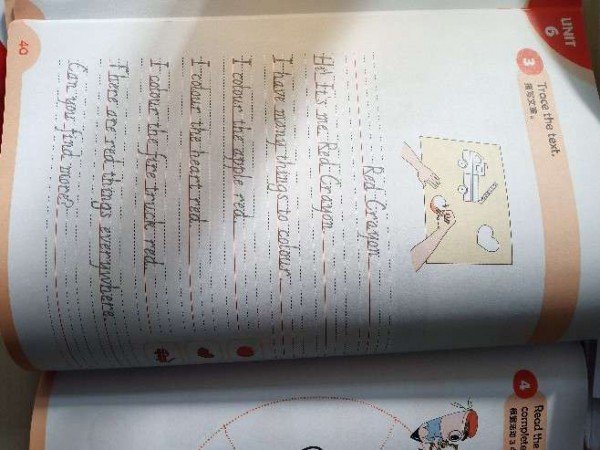 UNIT 6
3 Trace the text.
描写文章。
Red Crayon
Hi! It's me, Red Crayon.
I have many things to colour.
I colour the apple red.
I colour the heart red.
I colour the fire truck red.
There are red things everywhere.
Can you find more?
40
4 Read the
complete